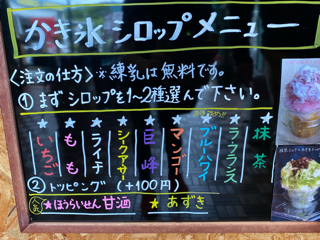 かき氷シロップメニュー
〈注文の仕方〉※練乳は無料です。
①まずシロップを1〜2種選んで下さい。
★いちご
★もも
★ライチ
★シークアサー
★巨峰
★マンゴー
★ブルーハワイ
★ラ・フランス
★抹茶
②トッピング（+100円）
人気 ★ほうらいせん甘酒 ★あずき